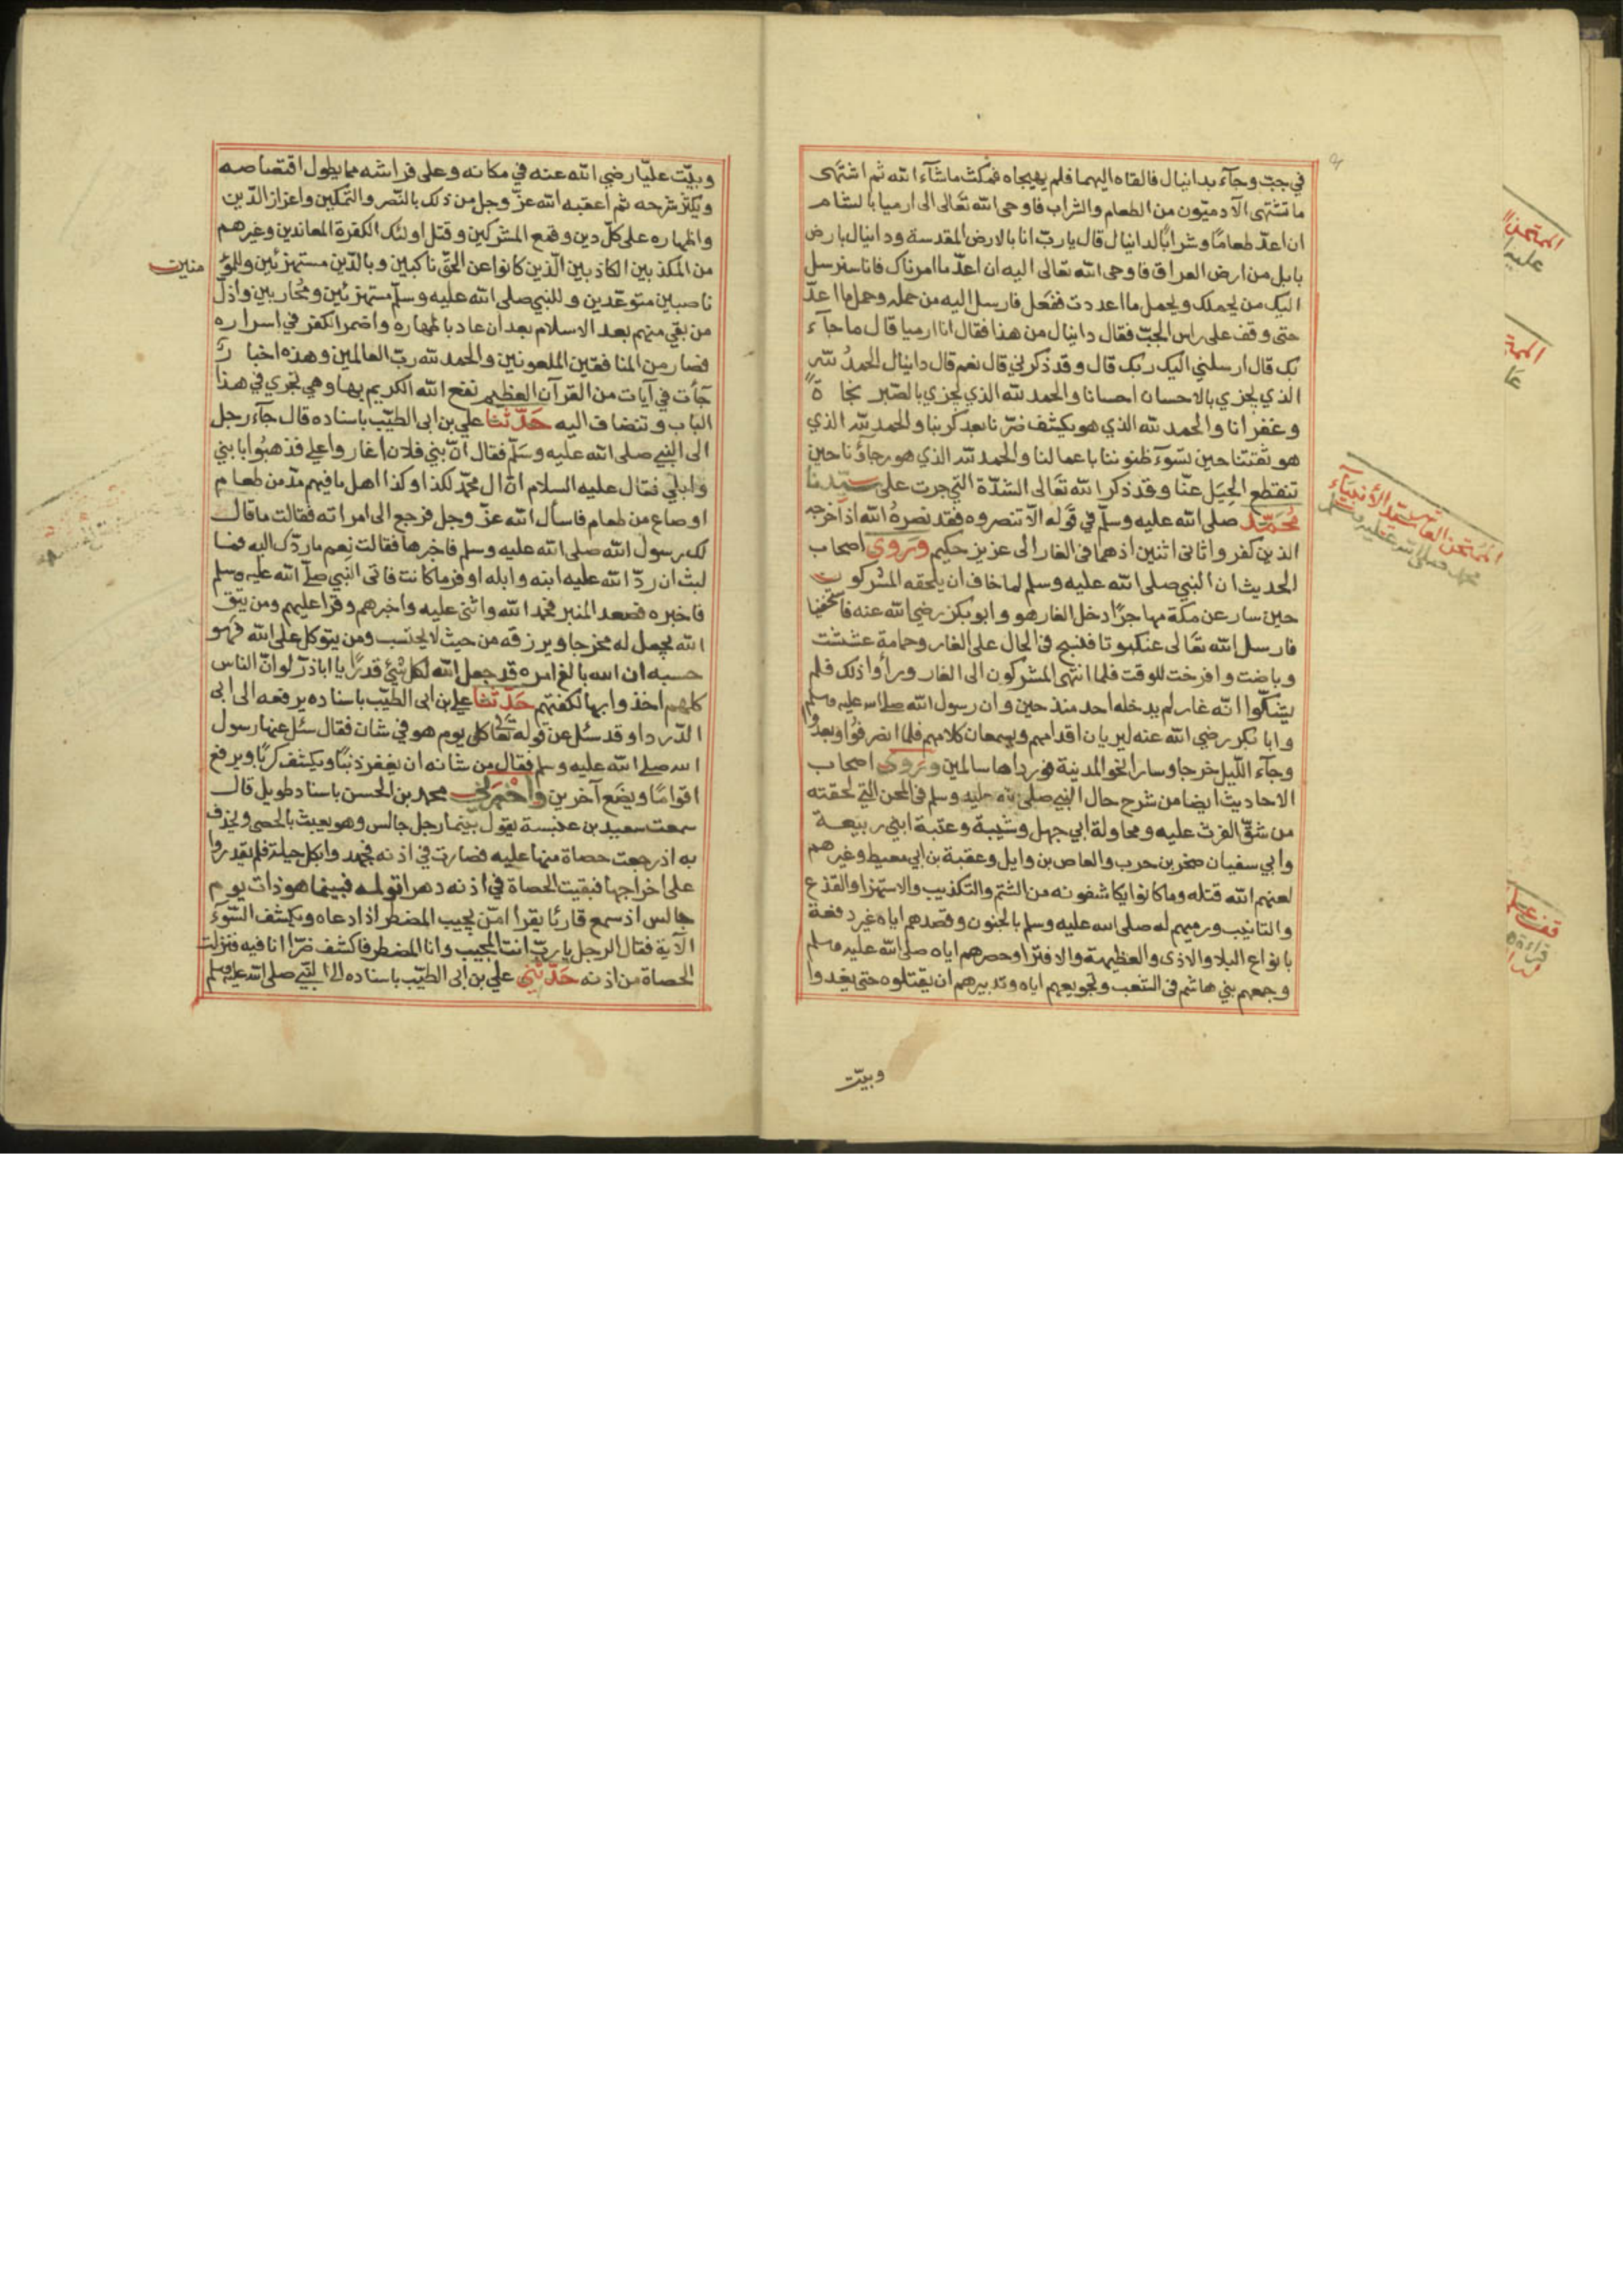 في جبّ وجآء بدانيال فالقاه اليهما فلم يهيجاه فمكث ماشآء الله ثم اشتهى
ما تشتهى الآدميّون من الطعام والشراب فاوحى الله تعالى الى ارميا بالشام
ان اعدّ طعامًا وشرابًا لدانيال قال يا ربّ انا بالارض المقدسة ودانيال بارض
بابل من ارض العراق فاوحى الله تعالى اليه ان اعدّ ما امرناك فانا سنرسل
اليك من يحملك ويحمل ما اعددت ففعل فارسل اليه من حمله وحمل ما اعدّ
حتى وقف على راس الجبّ فقال دانيال من هذا فقال انا ارميا قال ما جآء
بك قال ارسلني اليك ربك قال وقد ذكرني قال نعم قال دانيال الحمدُ لله
الذي يجزي بالاحسان احسانا والحمد لله الذي يجزي بالصّبر نجاةً
وغفرانا والحمد لله الذي هو يكشف ضرّنا بعد كربنا والحمد لله الذي
هو ثقتنا حين تسوٓء ظنوننا باعمالنا والحمد لله الذي هو رجاؤنا حين
تنقطع الحِيَل عنّا وقد ذكر الله تعالى الشدّة التي جرت على سيّدنا
مُحَمّد صلى الله عليه وسلّم في قوله الّا تنصروه فقد نصرهُ الله اذ اخرجه
الذين كفروا ثانى اثنين اذ هما فى الغار الى عزيز حكيم وَرَوى اصحاب
الحديث ان النبي صلى الله عليه وسلم لما خاف ان يلحقه المشركون
حين سار عن مكة مهاجرًا دخل الغار هو وابو بكر رضي الله عنه فاستخفيا
فارسل الله تعالى عنكبوتا فنسج فى الحال على الغار وحمامة عششت
وباضت وافرخت للوقت فلما انتهى المشركون الى الغار وراوا ذلك فلم
يشكّوا انّه غار لم يدخله احد منذ حين وان رسول الله صلى الله عليه وسلم
وابا بكر رضي الله عنه ليريان اقدامهم ويسمعان كلامهم فلما انصرفوُا وبعدُوا
وجآء اللّيل خرجا وسارا نحو المدينة فورداها سالمين وَرَوى اصحاب
الاحاديث ايضا من شرح حال النبي صلى الله عليه وسلم فى المحن التي لحقته
من شقّ الفرث عليه ومحاولة ابي جهل وشيبة وعتبة ابنى ربيعة
وابي سفيان صخر بن حرب والعاص بن وايل وعقبة بن ابي معيط وغيرهم
لعنهم الله قتله وما كانوا يكاشفونه من الشتم والتكذيب والاستهزا والقذع
والتانيب ورميهم له صلى الله عليه وسلم بالجنون وقصدهم اياه غير دفعة
بانواع البلا والاذى والعظيمة والافترا وحصرهم اياه صلى الله عليه وسلم
وجمعهم بني هاشم فى الشعب وتخويفهم اياه وتدبيرهم ان يقتلوه حتى يغدوا
وبيّت
الممتحن
عليه
الممتحن العاشر سيّد الأنبيَآء
محمد صلى الله عليه وسلم
قف على
قراءة
وبيّت عليّا رضي الله عنه في مكانه وعلى فراشه مما يطول اقتصاصه
ويكثر شرحه ثم اعقبه الله عزّ وجل من ذلك بالنّصر والتّمكين واعزاز الدّين
واظهاره على كلّ دين وقمع المشركين وقتل اولئك الكفرة المعاندين وغيرهم
من المكذبين الكاذبين الذين كانوا عن الحقّ ناكبين وبالدّين مستهزئين وللمؤ
منين
ناصبين متوعّدين وللنبي صلى الله عليه وسلّم مستهزئين ومُحاربين واذلّ
من بقي منهم بعد الاسلام بعد ان عاد باظهاره واضمر الكفر في اسراره
فصار من المنافقين الملعونين والحمد لله ربّ العالمين وهذه اخبارٌ
جآءت في آيات من القرآن العظيم نفع الله الكريم بها وهي تجري في هذا
الباب وتنضاف اليه حَدّثنا علي بن ابى الطيّب باسناده قال جآء رجل
الى النبي صلى الله عليه وسَلّم فقال انّ بني فلان اغاروا علي فذهبُوا بابني
وابلي فقال عليه السلام انّ ال محمّد لكذا وكذا اهل ما فيهم مدّ من طعام
او صاع من طعام فاسأل الله عزّ وجل فرجع الى امراته فقالت ما قال
لك رسول الله صلى الله عليه وسلم فاخبرها فقالت نِعم ما ردّك اليه فما
لبث ان ردّ الله عليه ابنه وابله اوفر ما كانت فاتى النبي صلّى الله عليه وسلم
فاخبره فصعد المنبر فحمد الله واثنى عليه واخبرهم وقرا عليهم ومن يتق
الله يجعل له مخرجا ويرزقه من حيث لا يحتسب ومن يتوكل على الله فهو
حسبه ان الله بالغ امره قد جعل الله لكل شئ قدرًا يا اباذرّ لو انّ الناس
كلهم اخذوا بها لكفتهم حَدّثنا علي بن ابى الطيّب باسناده يرفعه الى ابى
الدّردا وقد سئل عن قوله تعالى كل يوم هو في شان فقال سئل عنها رسول
الله صلى الله عليه وسلم فقال من شانه ان يغفر ذنبًا ويكشف كربًا ويرفع
اقوامًا ويضَع آخرين واخبَرَني محمد بن الحسن باسناد طويل قال
سمعت سعيد بن عنبسة يقول بينما رجل جالس وهو يعبث بالحصى ويحذف
به اذ رجعت حصاة منها عليه فصارت في اذنه فجهدوا بكل حيلة فلم يقدروا
على اخراجها فبقيت الحصاة في اذنه دهرا تولمه فبينما هو ذات يوم
جالس اذ سمع قارئا يقرا امّن يجيب المضطر اذا دعاه ويكشف السّوٓء
الآية فقال الرجل يا ربّ انت المجيب وانا المضطر فاكشف ضرّ ما انا فيه فنزلت
الحصاة من اذنه حَدّثني علي بن ابى الطيّب باسناده الى النبي صلى الله عليه وسلم